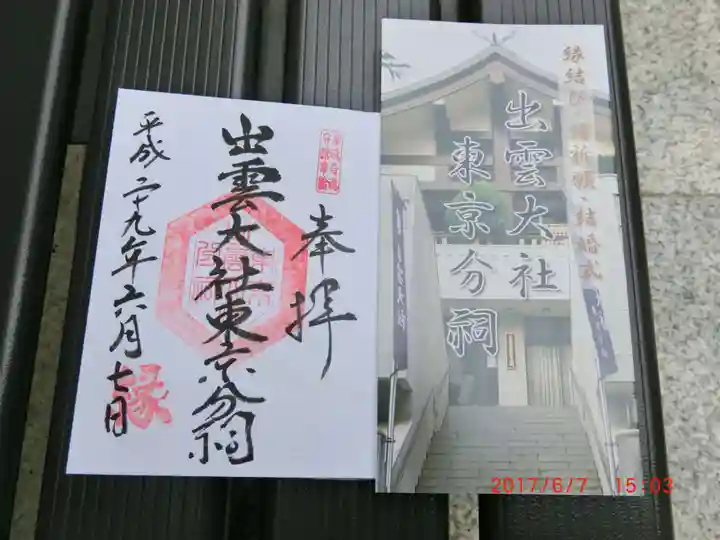 奉拝
出雲大社東京分祠
平成二十九年六月七日
縁
縁結び
祈願・結婚式
出雲大社
東京分祠
2017/6/7 15:03